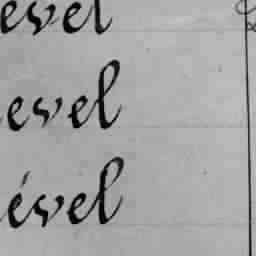 evel
evel
ével